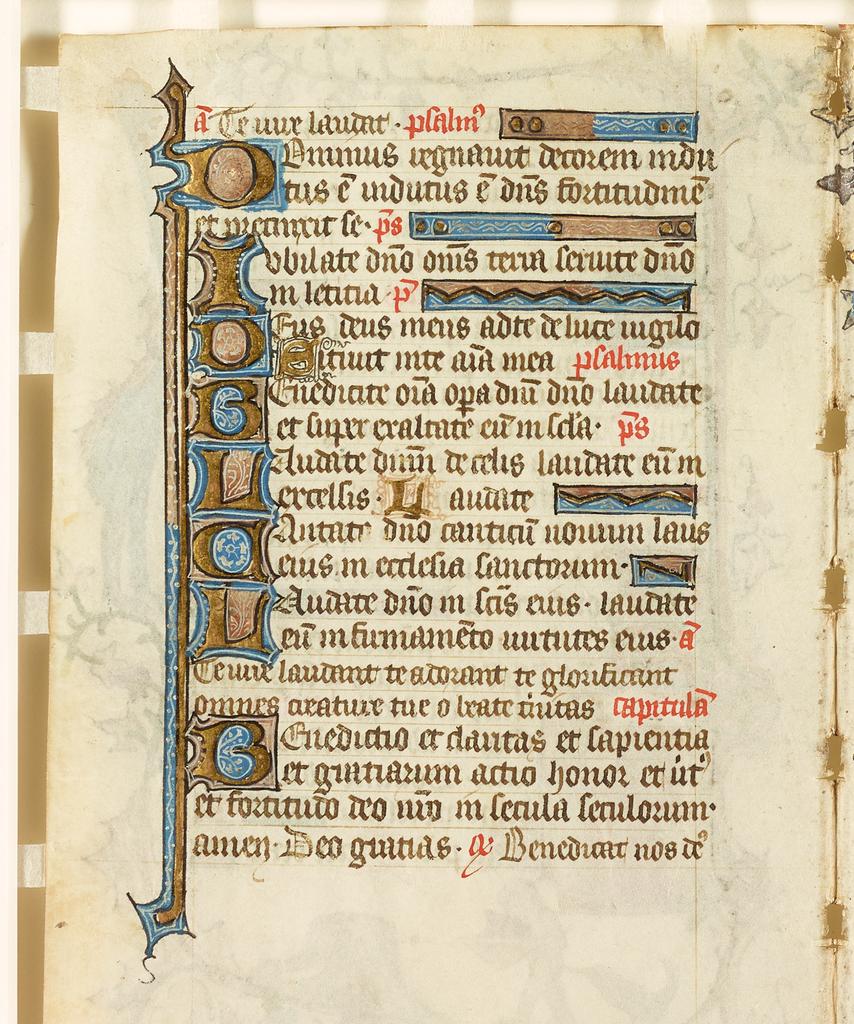 a᷃ Te iure laudat · psalmꝰ
Dominus regnauit decorem indu
tus ē indutus ē dn̄s fortitudinē
et precinxit se · p̄s
Iubilate dn̄o om̄is terra seruite dn̄o
in leticia p̄
Deus deus meus ad te de luce uigilo
Sitiuit in te aīa mea psalmus
Benedicite oīa opa dn̄i dn̄o laudate
et super exaltate eū in scl̄a · p̄s
Laudate dn̄m de celis laudate eū in
excelsis · Laudate
Cantate dn̄o canticū nouum laus
eius in ecclesia sanctorum ·
Laudate dn̄o in sc̄is eius · laudate
eū in firmamēto uirtutes eius · ā
Te iure laudant te adorant te glorificant
omnes creature tue o beate t̄nitas capitulā
Benedictio et claritas et sapientia
et gratiarum actio honor et ūtꝰ
et fortitudo deo nr̄o in secula seculorum ·
amen · Deo gratias · Benedicat nos deꝰ